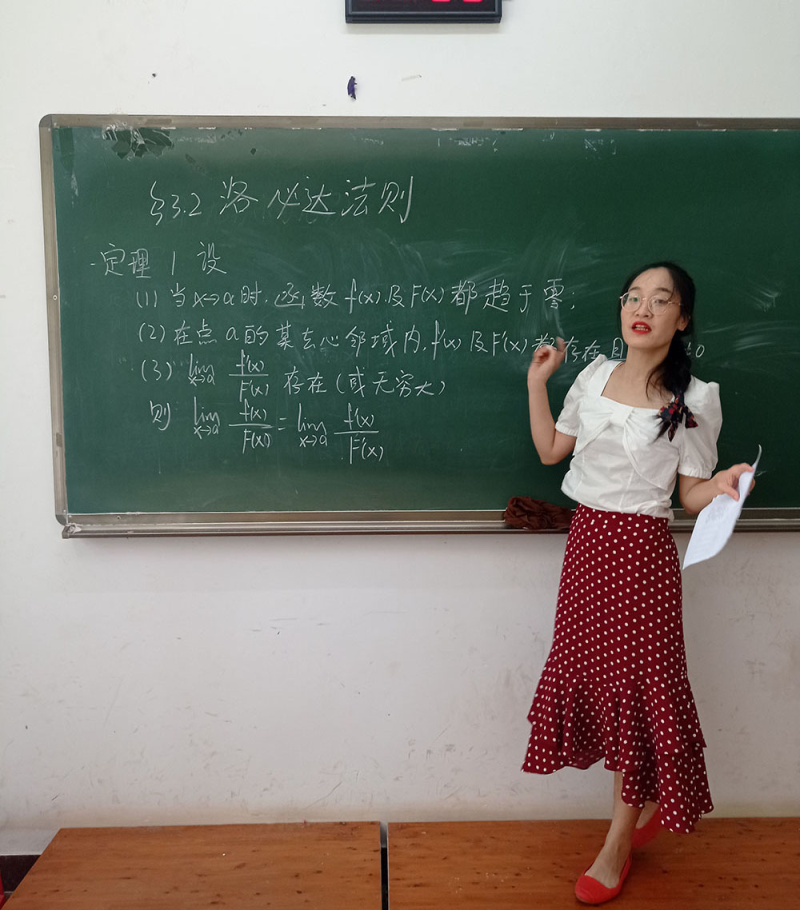 §3.2 洛必达法则
定理1 设
(1) 当x→a时, 函数 f(x)及F(x)都趋于零;
(2) 在点a的某去心邻域内, f'(x)及F'(x)都存在且 ≠0
(3) lim x→a f'(x)/F'(x) 存在(或无穷大)
则 lim x→a f(x)/F(x) = lim x→a f'(x)/F'(x)